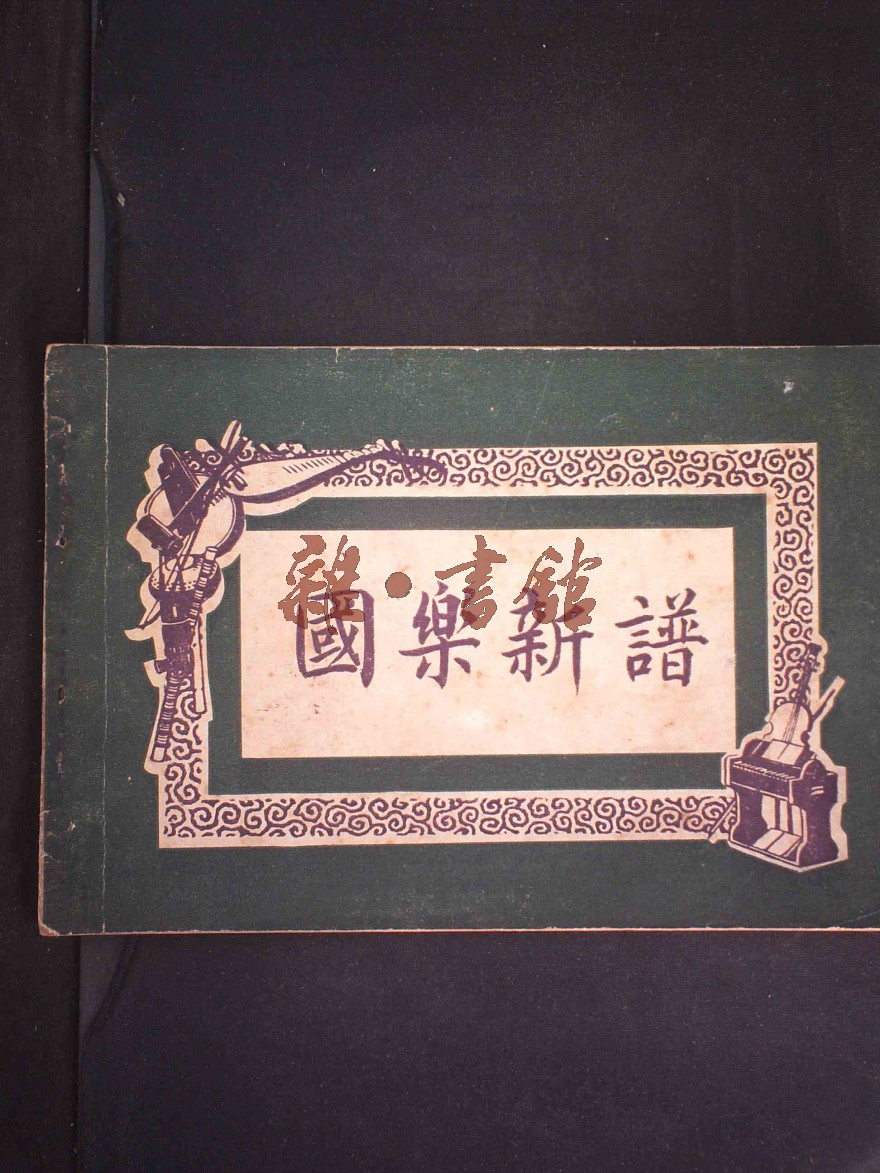 雜·書館
國樂新譜